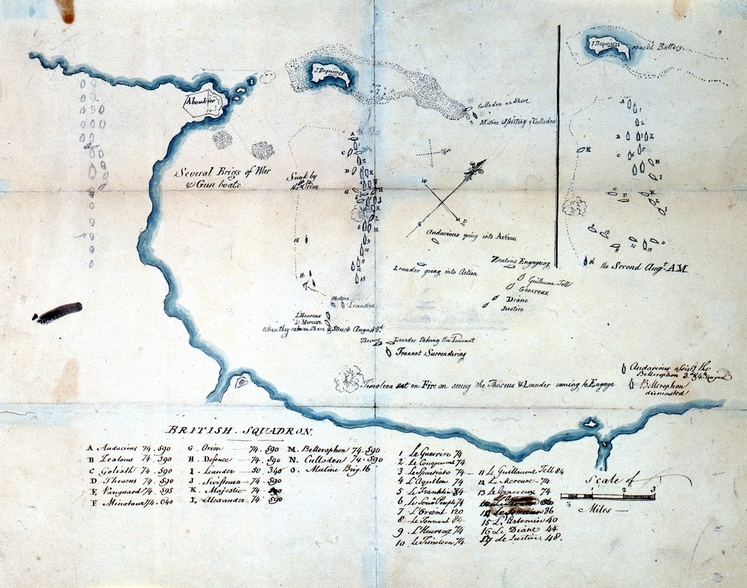 Aboukir
I Bequieres
I Bequieres
Battery
Culloden on Shore
Mutine assisting ye Culloden
Several Brigs of War
& Gun boats
Sunk by
Audacious going into Action
Leander going into Action
Zealous Engaging
Guillaume Tell
Genereux
Diane
Justice
the Second Augt. A.M.
Mutine
Leandre
L'Heureux
Le Mercure
When they ran on Shore & Struck August 2d
Theseus
Leander taking the Tonnant
Tonnant Surrendering
Timoleon set on Fire on seeing the Theseus & Leander coming to Engage
Audacious assistg the
Bellerophon
Bellerophon
dismasted
BRITISH SQUADRON.
A. Audacious 74. 590
B Zealous 74. 590
C Goliath 74. 590
D. Theseus 74. 590
E. Vanguard 74. 595
F Minotaur 74. 640
G. Orion 74. 590
H. Defence 74. 590
I. Leander 50 340
J. Swiftsure 74. 590
K. Majestic 74. 590
L. Alexander 74. 590
M. Bellerophon 74. 590
N. Culloden 74. 590
O. Mutine Brig. 16
1 Le Guerrier 74
2 Le Conquerant 74
3 Le Spartiate 74
4 L'Aquilon 74
5 Le Franklin 84
6 Le Souv. Peuple 74
7 L'Orient 120
8 Le Tonnant 84
9 L'Heureux 74
10 Le Timoleon 74
11 Le Guillaume Tell 84
12 Le Mercure 74
13 Le Genereux 74
36
15 L'Artemise 40
16 Le Diane 44
17 Le Justice 48.
Scale of
1 2 3
Miles